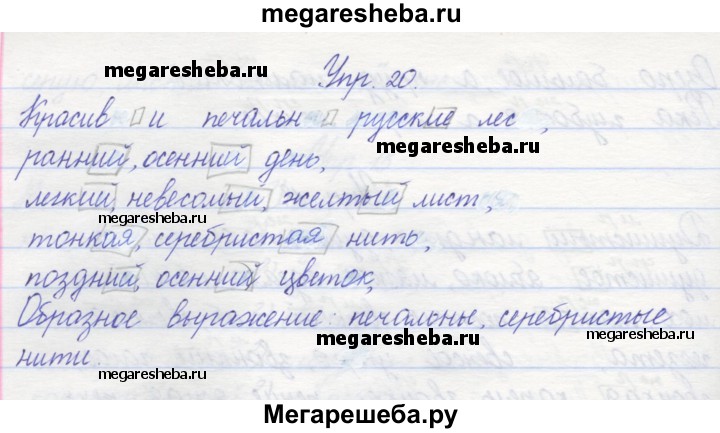 megaresheba.ru
Упр. 20.
megaresheba.ru
Красив и печальн русские лес,
megaresheba.ru
ранний, осенний день,
легкий, невесомый, желтый лист,
megaresheba.ru
тонкая, серебристая нить,
поздний, осенний цветок,
Образное выражение: печальны, серебристые
megaresheba.ru
нити.
megaresheba.ru
Мегарешеба.ру